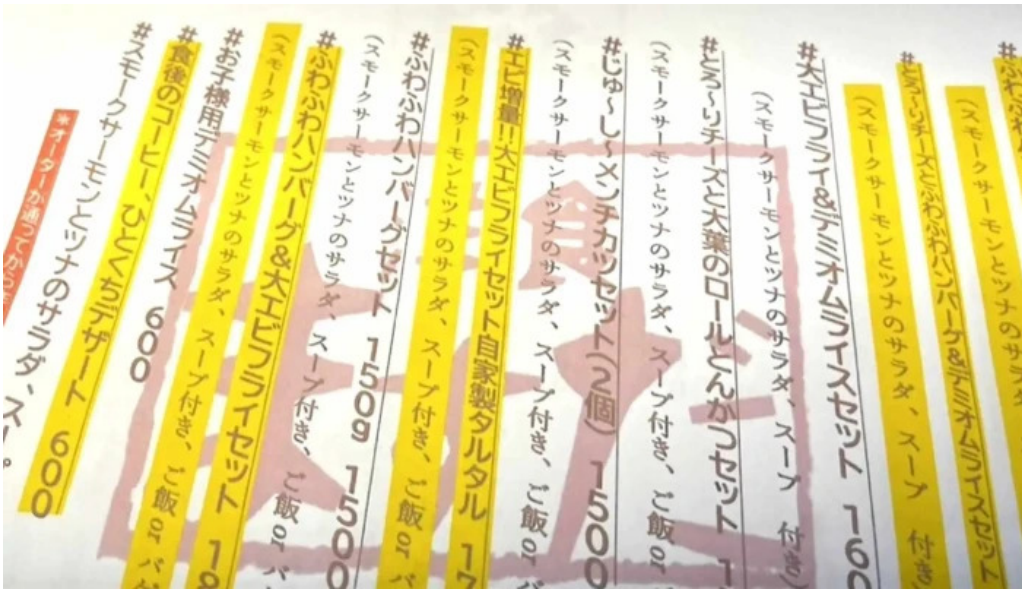 #ふわふわハ
(スモークサーモンとツナのサラダ
#とろ〜りチーズとふわふわハンバーグ&デミオムライスセット
(スモークサーモンとツナのサラダ、スープ 付き
#大エビフライ&デミオムライスセット 160
(スモークサーモンとツナのサラダ、スープ 付き)
#とろ〜りチーズと大葉のロールとんかつセット 1
(スモークサーモンとツナのサラダ、スープ付き、ご飯 or
#じゅ〜し〜メンチカツセット(2個) 1500
(スモークサーモンとツナのサラダ、スープ付き、ご飯 or バ
#エビ増量!!大エビフライセット自家製タルタル 17
(スモークサーモンとツナのサラダ、スープ付き、ご飯 or バ
#ふわふわハンバーグセット 150g 1500
(スモークサーモンとツナのサラダ、スープ付き、ご飯 or バ
#ふわふわハンバーグ&大エビフライセット 18
(スモークサーモンとツナのサラダ、スープ付き、ご飯 or バ
#お子様用デミオムライス 600
#食後のコーヒー、ひとくちデザート 600
#スモークサーモンとツナのサラダ、スー。
*オーダーが通ってから